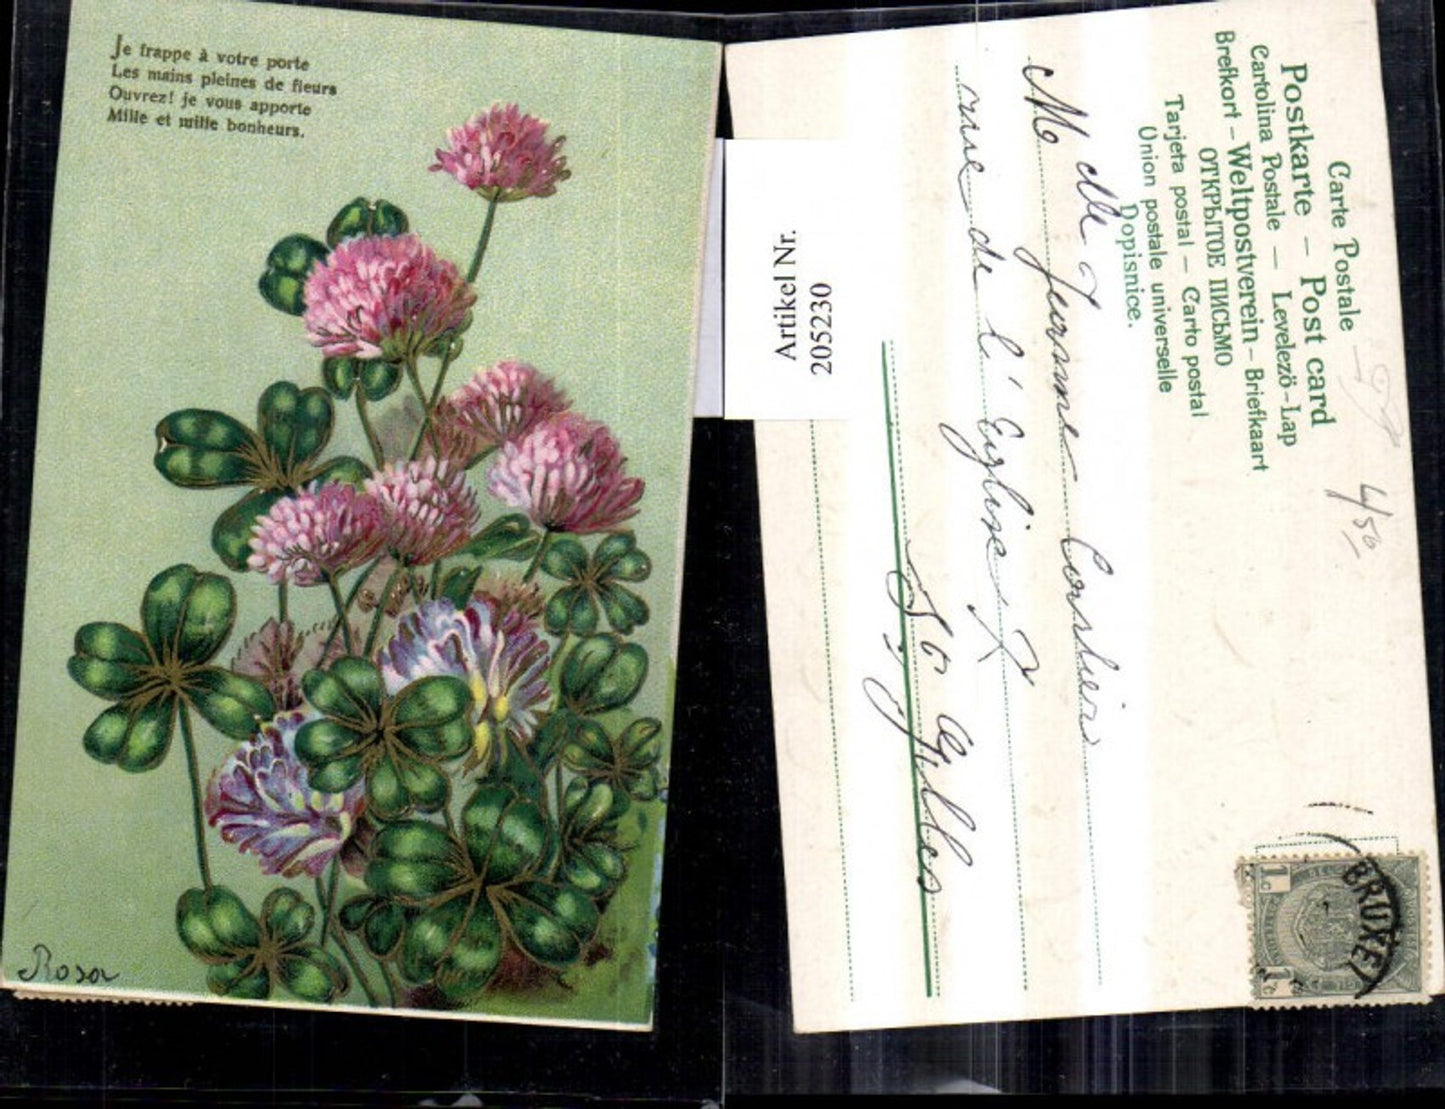 Je frappe à votre porte
Les mains pleines de fleurs
Ouvrez! je vous apporte
Mille et mille bonheurs.
Rosa
Artikel Nr.
205230
Carte Postale
Postkarte – Post card
Cartolina Postale – Levelező-Lap
Brefkort – Weltpostverein – Briefkaart
ОТКРЫТОЕ ПИСЬМО
Tarjeta postal – Carto postal
Union postale universelle
Dopisnice.
4,50
Melle
rue de l'Eglise 7
St Gilles
1c
1c
BRUXE